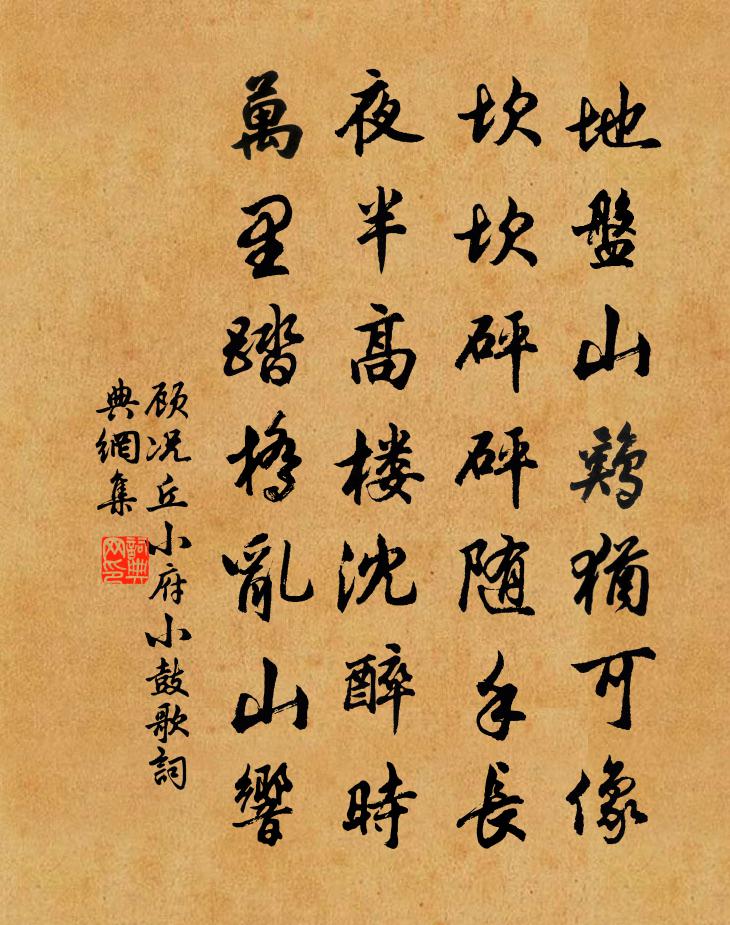 地盤山鷄猶可像
坎坎砰砰随手長
夜半高楼沈醉時
萬里踏橋亂山響
顾况丘小府小鼓歌詞
典網集
詞典
网印